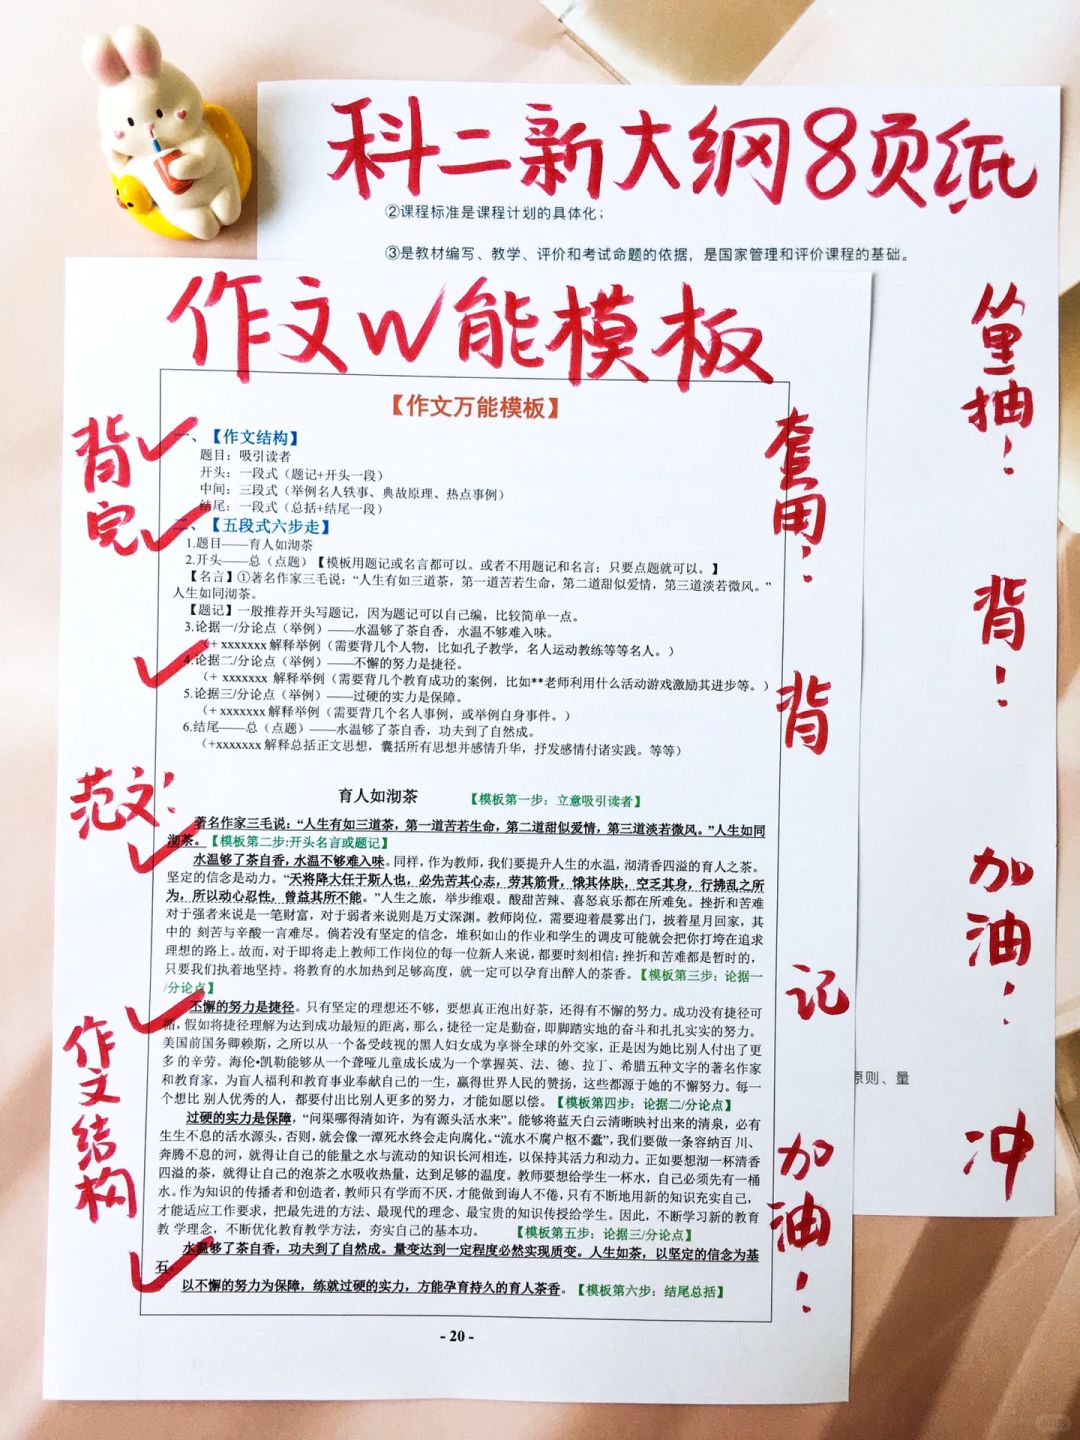 科二新大纲8页纸
②课程标准是课程计划的具体化；
③是教材编写、教学、评价和考试命题的依据，是国家管理和评价课程的基础。
作文W能模板
【作文万能模板】
一、【作文结构】
题目：吸引读者
开头：一段式（题记+开头一段）
中间：三段式（举例名人轶事、典故原理、热点事例）
结尾：一段式（总括+结尾一段）
二、【五段式六步走】
1.题目——育人如沏茶
2.开头——总（点题）【模板用题记或名言都可以。或者不用题记和名言；只要点题就可以。】
【名言】①著名作家三毛说：“人生有如三道茶，第一道苦若生命，第二道甜似爱情，第三道淡若微风。”
人生如同沏茶。
【题记】一般推荐开头写题记，因为题记可以自己编，比较简单一点。
3.论据一/分论点（举例）——水温够了茶自香，水温不够难入味。
（+ xxxxxxx 解释举例（需要背几个人物，比如孔子教学，名人运动教练等等名人。）
4.论据二/分论点（举例）——不懈的努力是捷径。
（+ xxxxxxx 解释举例（需要背几个教育成功的案例，比如**老师利用什么活动游戏激励其进步等。）
5.论据三/分论点（举例）——过硬的实力是保障。
（+ xxxxxxx 解释举例（需要背几个名人事例，或举例自身事件。）
6.结尾——总（点题）——水温够了茶自香，功夫到了自然成。
（+xxxxxxx 解释总括正文思想，囊括所有思想并感情升华，抒发感情付诸实践。等等）
育人如沏茶 【模板第一步：立意吸引读者】
著名作家三毛说：“人生有如三道茶，第一道苦若生命，第二道甜似爱情，第三道淡若微风。”人生如同
沏茶。【模板第二步:开头名言或题记】
水温够了茶自香，水温不够难入味。同样，作为教师，我们要提升人生的水温，沏清香四溢的育人之茶。
坚定的信念是动力。“天将降大任于斯人也，必先苦其心志，劳其筋骨，饿其体肤，空乏其身，行拂乱之所
为，所以动心忍性，曾益其所不能。”人生之旅，举步维艰。酸甜苦辣、喜怒哀乐都在所难免。挫折和苦难
对于强者来说是一笔财富，对于弱者来说则是万丈深渊。教师岗位，需要迎着晨雾出门，披着星月回家，其
中的 刻苦与辛酸一言难尽。倘若没有坚定的信念，堆积如山的作业和学生的调皮可能就会把你打垮在追求
理想的路上。故而，对于即将走上教师工作岗位的每一位新人来说，都要时刻相信：挫折和苦难都是暂时的，
只要我们执着地坚持。将教育的水加热到足够高度，就一定可以孕育出醉人的茶香。【模板第三步：论据一
/分论点】
不懈的努力是捷径。只有坚定的理想还不够，要想真正泡出好茶，还得有不懈的努力。成功没有捷径可
循，假如将捷径理解为达到成功最短的距离，那么，捷径一定是勤奋，即脚踏实地的奋斗和扎扎实实的努力。
美国前国务卿赖斯，之所以从一个备受歧视的黑人妇女成为享誉全球的外交家，正是因为她比别人付出了更
多 的辛劳。海伦•凯勒能够从一个聋哑儿童成长成为一个掌握英、法、德、拉丁、希腊五种文字的著名作家
和教育家，为盲人福利和教育事业奉献自己的一生，赢得世界人民的赞扬，这些都源于她的不懈努力。每一
个想比 别人优秀的人，都要付出比别人更多的努力，才能如愿以偿。【模板第四步：论据二/分论点】
过硬的实力是保障，“问渠哪得清如许，为有源头活水来”。能够将蓝天白云清晰映衬出来的清泉，必有
生生不息的活水源头，否则，就会像一潭死水终会走向腐化。“流水不腐户枢不蠹”，我们要做一条容纳百 川、
奔腾不息的河，就得让自己的能量之水与流动的知识长河相连，以保持其活力和动力。正如要想沏一杯清香
四溢的茶，就得让自己的泡茶之水吸收热量，达到足够的温度。教师要想给学生一杯水，自己必须先有一桶
水。作为知识的传播者和创造者，教师只有学而不厌，才能做到诲人不倦，只有不断地用新的知识充实自己，
才能适应工作要求，把最先进的方法、最现代的理念、最宝贵的知识传授给学生。因此，不断学习新的教育
教 学理念，不断优化教育教学方法，夯实自己的基本功。 【模板第五步：论据三/分论点】
水温够了茶自香，功夫到了自然成。量变达到一定程度必然实现质变。人生如茶，以坚定的信念为基
石，
以不懈的努力为保障，练就过硬的实力，方能孕育持久的育人茶香。【模板第六步：结尾总括】
- 20 -
背完
范文！
作文结构
套用！
背
记
加油！
抽！
背！
加油！
冲
原则、量